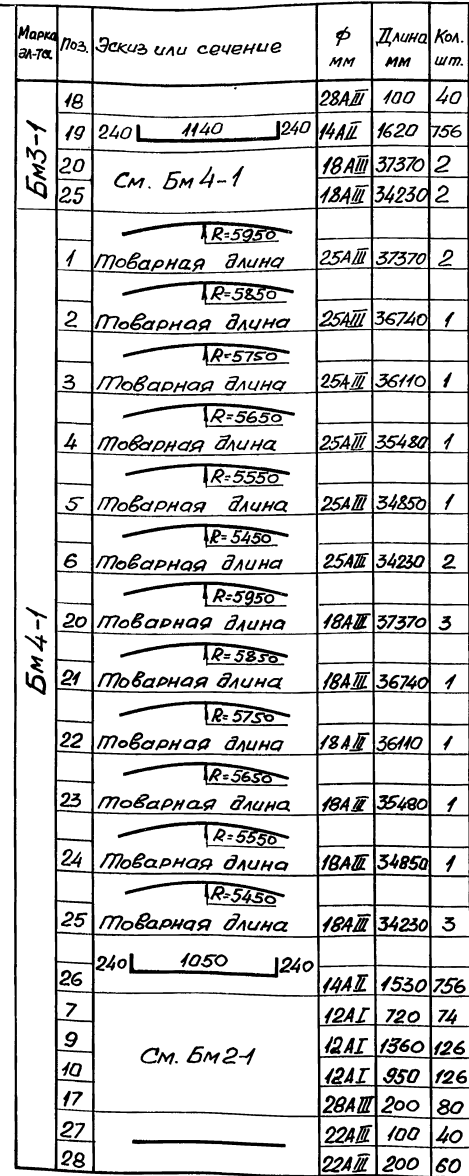 Марка эл-та Поз. Эскиз или сечение ϕ мм Длина мм Кол. шт.
Бм3-1
18 28АIII 100 40
19 240 1140 240 14АII 1620 756
20 См. Бм 4-1 18АIII 37370 2
25 18АIII 34230 2
Бм4-1
R=5950
1 Товарная длина 25АIII 37370 2
R=5850
2 Товарная длина 25АIII 36740 1
R=5750
3 Товарная длина 25АIII 36110 1
R=5650
4 Товарная длина 25АIII 35480 1
R=5550
5 Товарная длина 25АIII 34850 1
R=5450
6 Товарная длина 25АIII 34230 2
R=5950
20 Товарная длина 18АIII 37370 3
R=5850
21 Товарная длина 18АIII 36740 1
R=5750
22 Товарная длина 18АIII 36110 1
R=5650
23 Товарная длина 18АIII 35480 1
R=5550
24 Товарная длина 18АIII 34850 1
R=5450
25 Товарная длина 18АIII 34230 3
240 1050 240
26 14АII 1530 756
7 12АI 720 74
9 См. Бм2-1 12АI 1360 126
10 12АI 950 126
17 28АIII 200 80
27 22АIII 100 40
28 22АIII 200 60